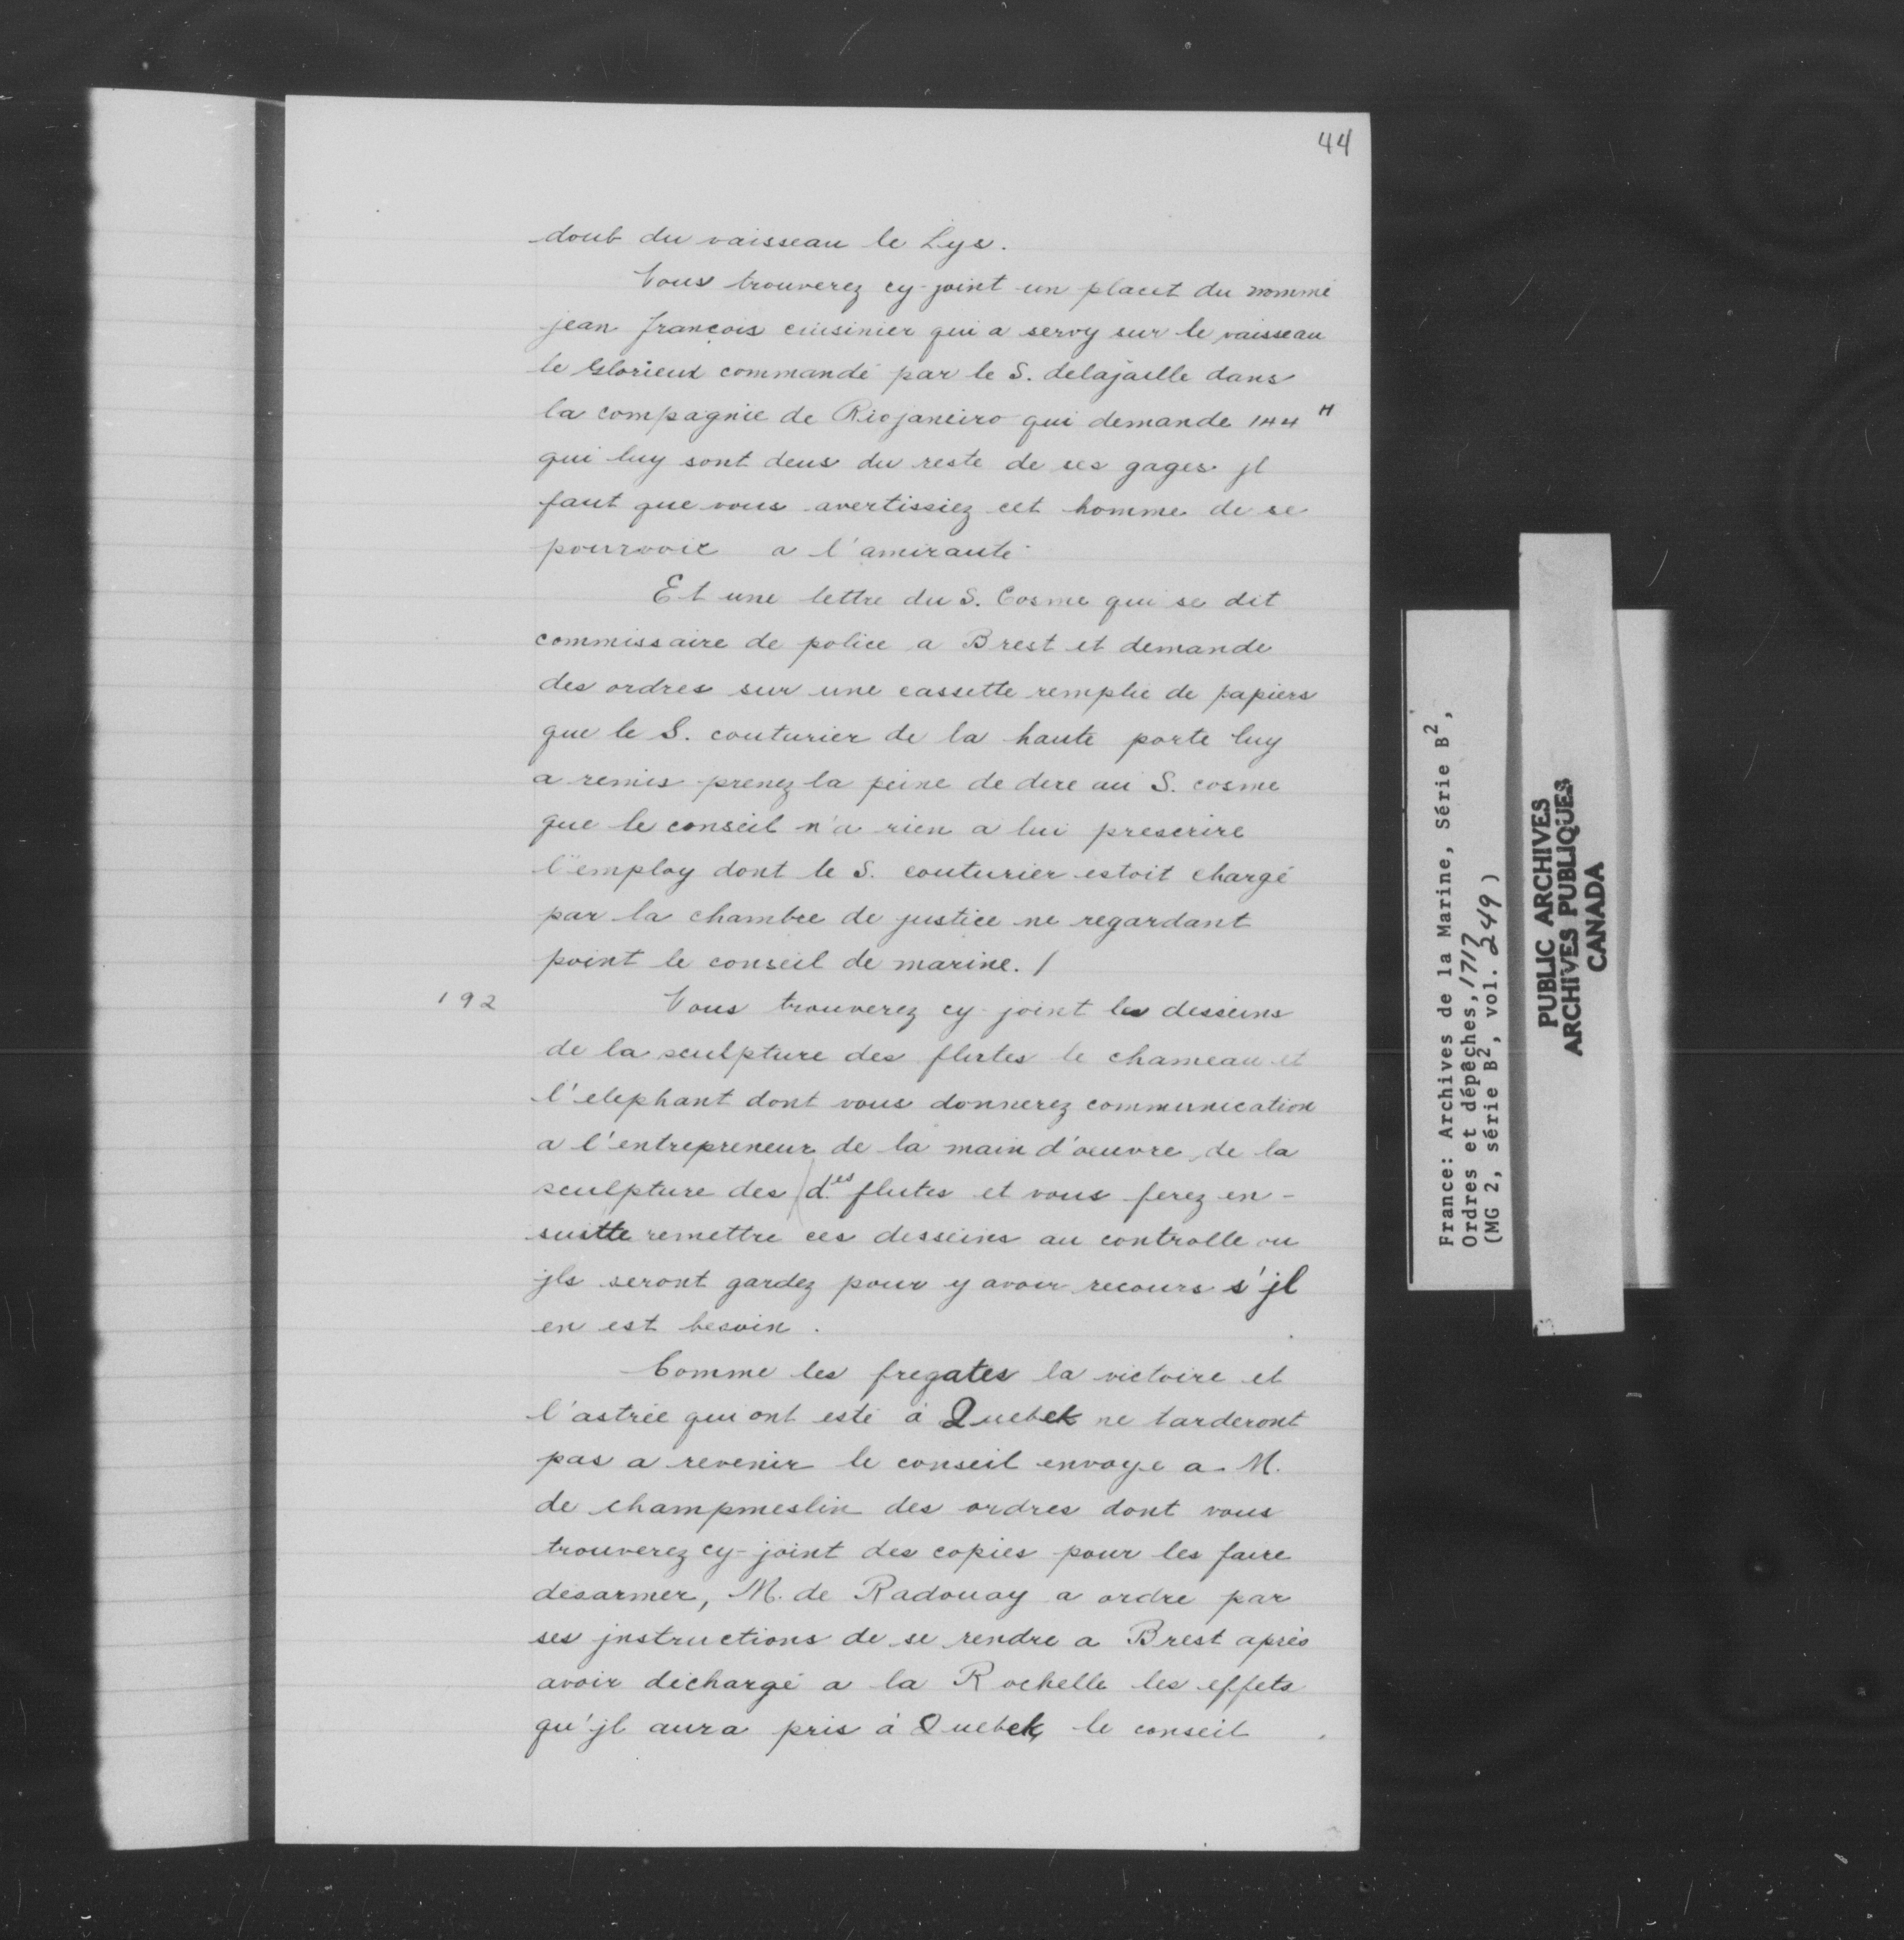 44
doub du vaisseau le Lys.
Vous trouverez cy-joint un placet du nommé
jean françois cuisinier qui a servy sur le vaisseau
le Glorieux commandé par le S. delajaille dans
la compagnie de Riojaneiro qui demande 144 #
qui luy sont deus du reste de ses gages jl
faut que vous avertissiez cet homme de se
pourvoir a l'amirauté
Et une lettre du S. Cosme qui se dit
commissaire de police a Brest et demande
des ordres sur une cassette remplie de papiers
que le S. couturier de la haute porte luy
a remis prenez la peine de dire au S. cosme
que le conseil n'a rien a lui prescrire
l'employ dont le S. couturier estoit chargé
par la chambre de justice ne regardant
point le conseil de marine. /
192
Vous trouverez cy-joint les desseins
de la sculpture des flutes le chameau et
l'elephant dont vous donnerez communication
a l'entrepreneur de la main d'oeuvre de la
sculpture des d.es flutes et vous ferez en-
suitte remettre ces desseins au controlle ou
jls seront gardez pour y avoir recours s'jl
en est besoin.
Comme les fregates la victoire et
l'astrée qui ont esté à Quebek ne tarderont
pas a revenir le conseil envoye a M.
de champmeslin des ordres dont vous
trouverez cy-joint des copies pour les faire
desarmer, M. de Radouay a ordre par
ses jnstructions de se rendre a Brest après
avoir déchargé a la Rochelle les effets
qu'jl aura pris à Quebek, le conseil
France: Archives de la Marine, Série B2,
Ordres et dépêches, 1717
(MG 2, série B2, vol. 249)
PUBLIC ARCHIVES
ARCHIVES PUBLIQUES
CANADA